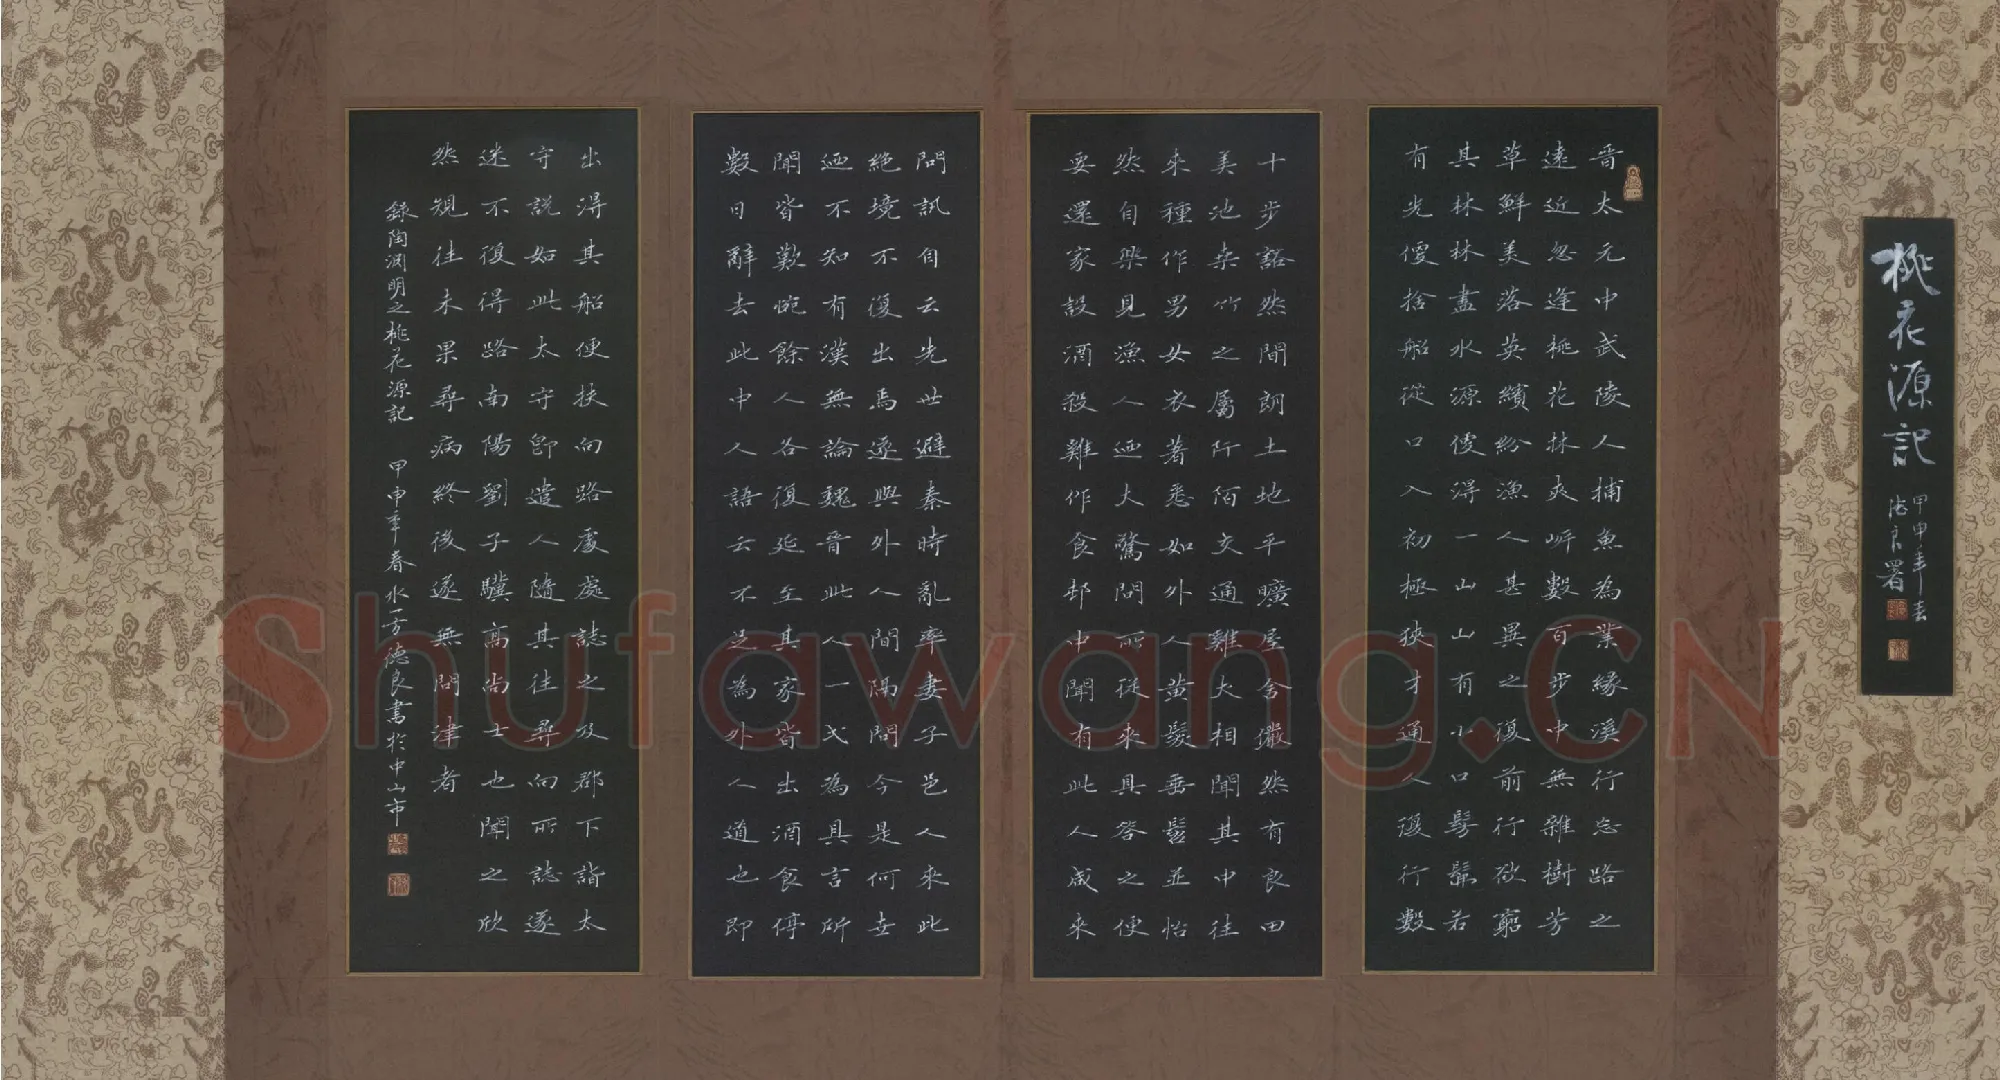 桃花源記
甲申年春
德良署
晉太元中武陵人捕魚為業緣溪行忘路之
遠近忽逢桃花林夾岍數百步中無雜樹芳
草鮮美落英繽紛漁人甚異之復前行欲窮
其林林盡水源便得一山山有小口髣髴若
有光便捨船從口入初極狹才通人復行數
十步豁然開朗土地平曠屋舍儼然有良田
美池桒竹之屬阡陌交通雞犬相聞其中往
來種作男女衣著悉如外人黃髮垂髫並怡
然自樂見漁人迺大驚問所從來具答之便
要還家設酒殺雞作食邨中聞有此人咸來
問訊自云先世避秦時亂率妻子邑人來此
絕境不復出焉遂與外人間隔問今是何世
迺不知有漢無論魏晉此人一弌為具言所
聞皆歎惋餘人各復延至其家皆出酒食停
數日辭去此中人語云不足為外人道也即
出得其船便扶向路處處誌之及郡下詣太
守說如此太守即遣人隨其往尋向所誌遂
迷不復得路南陽劉子驥高尚士也聞之欣
然規往未果尋病終後遂無問津者
錄陶淵明之桃花源記 甲申年春水一方德良書於中山市
Shufawang.CN